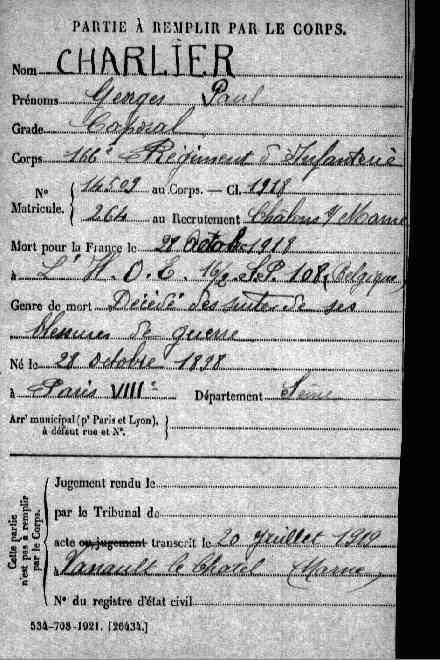 PARTIE À REMPLIR PAR LE CORPS.
Nom CHARLIER
Prénoms Georges Paul
Grade Caporal
Corps 166e Régiment d'Infanterie
No Matricule. { 14509 au Corps. — Cl. 1918
264 au Recrutement Chalons s/ Marne
Mort pour la France le 28 Octobre 1918
à L'H. O. E. S.P. 108 (Belgique)
Genre de mort Décédé des suites de ses
blessures de guerre
Né le 28 octobre 1898
à Paris VIIIe Département Seine
Arrt municipal (pr Paris et Lyon), à défaut rue et No. }
Cette partie n'est pas à remplir par le Corps. {
Jugement rendu le
par le Tribunal de
acte ou jugement transcrit le 20 juillet 1919
Vanault le Chatel (Marne)
No du registre d'état civil
534-708-1921. [26434.]